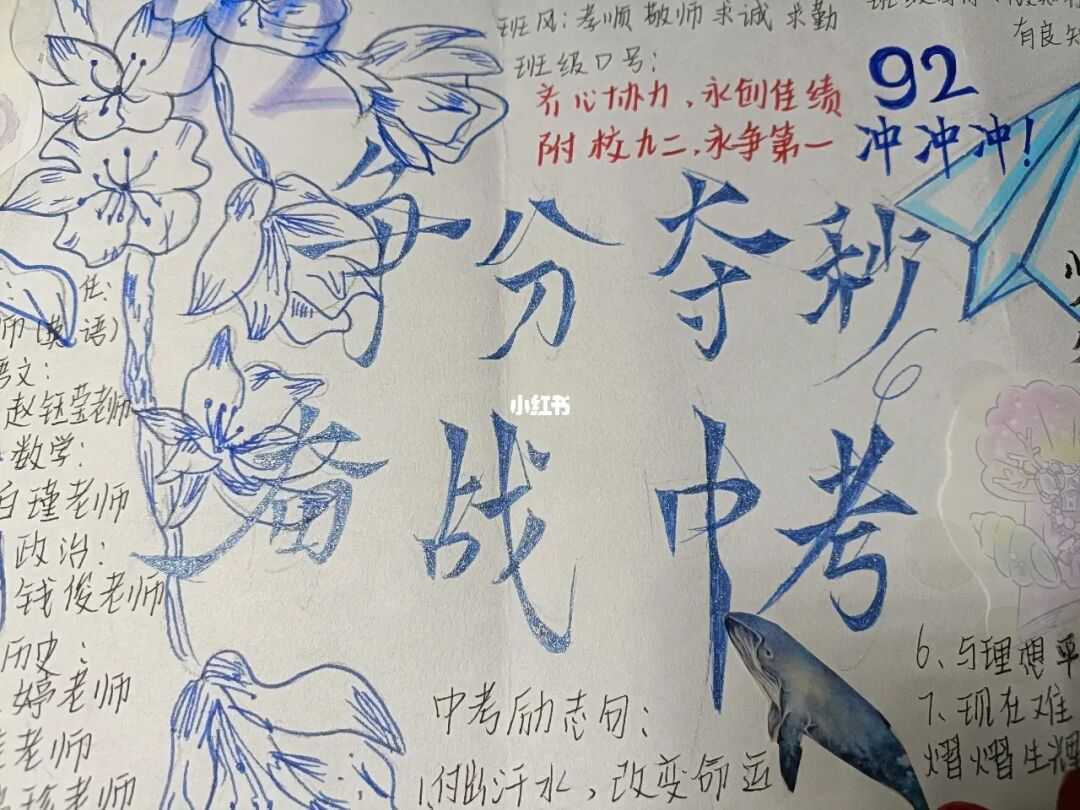 班风：孝顺 敬师 求诚 求勤
有良知
班级口号：
齐心协力，永创佳绩
附校九二，永争第一
92
冲冲冲！
争分夺秒
奋战中考
小红书
任：
师（英语）
语文：
赵钰莹老师
数学：
白瑾老师
政治：
钱俊老师
历史：
婷老师
老师
老师
中考励志句：
1.付出汗水，改变命运
6、与理想平
7、现在难
熠熠生辉